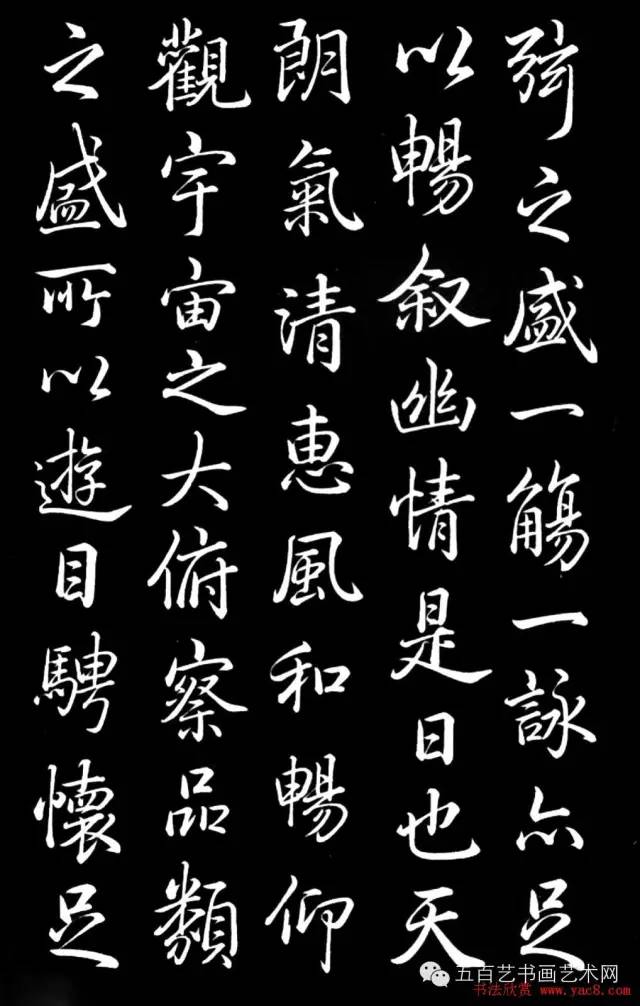 弦之盛一觴一詠亦足
以暢叙幽情是日也天
朗氣清惠風和暢仰
觀宇宙之大俯察品類
之盛所以遊目騁懷足
五百艺书画艺术网
书法欣赏 www.yac8.com